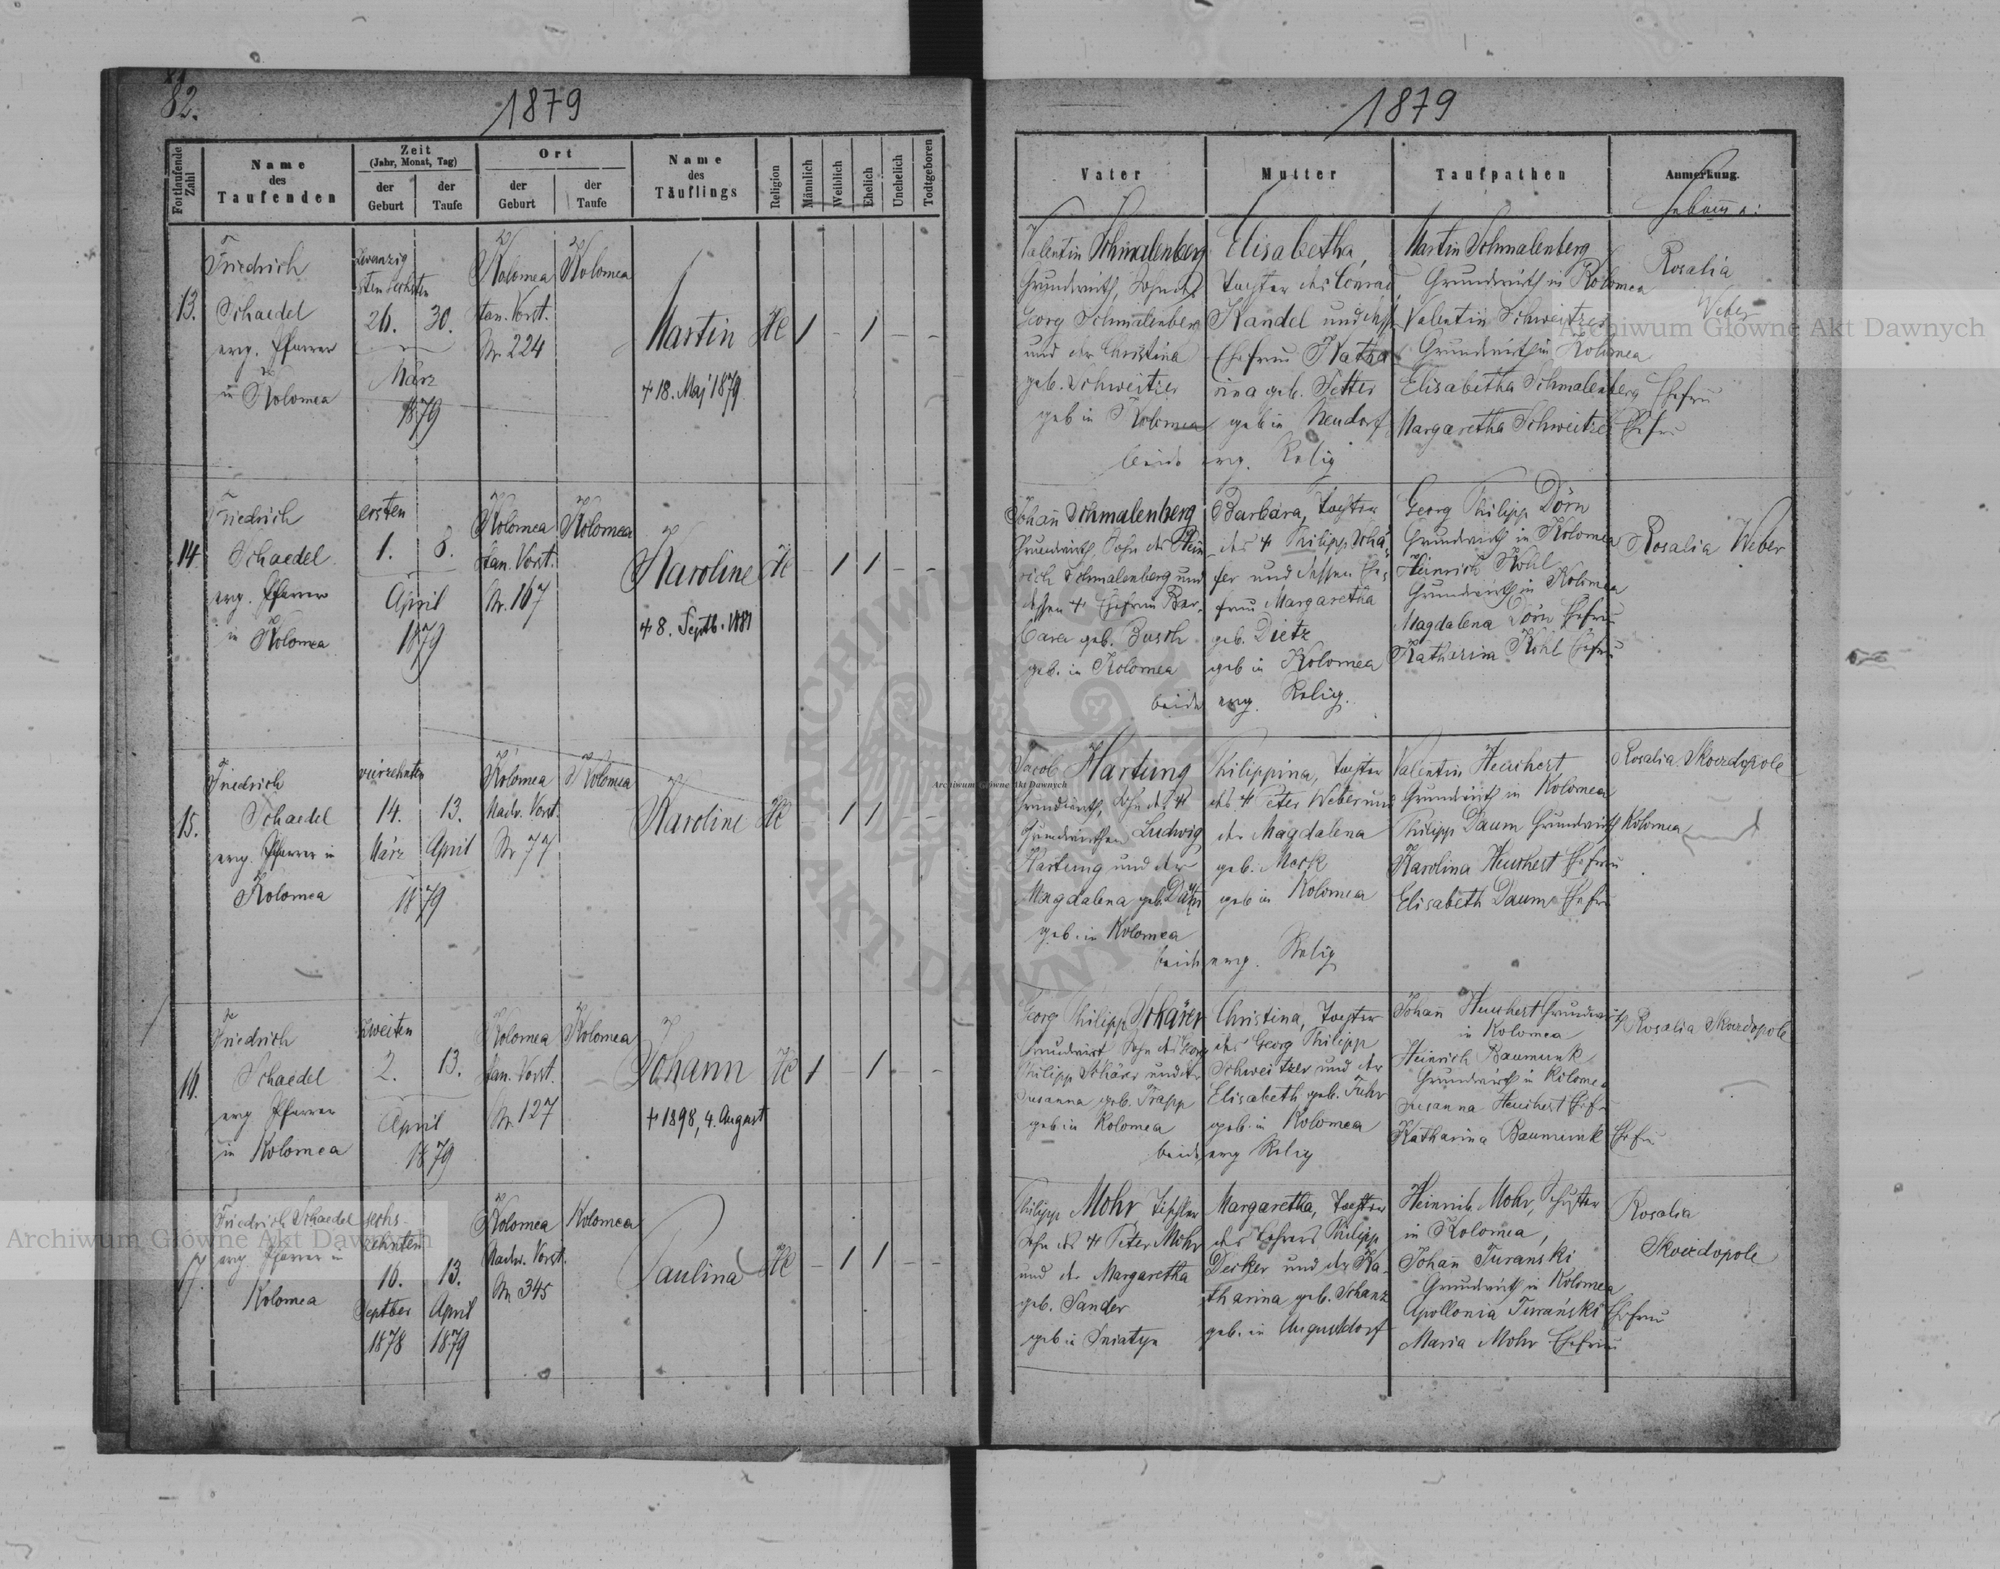 82.
1879
Fortlaufende Zahl
Name des Taufenden
Zeit
(Jahr, Monat, Tag)
der Geburt
der Taufe
Ort
der Geburt
der Taufe
Name des Täuflings
Religion
Männlich
Weiblich
Ehelich
Unehelich
Todtgeboren
13.
Friedrich
Schaedel
evg. Pfarrer
in Kolomea
zwanzig
sten sechsten
26. 30.
März
1879
Kolomea
Stan. Vorst.
Nr. 224
Kolomea
Martin
+ 18. Maj 1879
HC
1 – 1 – –
14.
Friedrich
Schaedel
evg. Pfarrer
in Kolomea
ersten
1. 8.
April
1879
Kolomea
Stan. Vorst.
Nr. 167
Kolomea
Karoline
+ 8. Septb. 1881
HC
– 1 1 – –
15.
Friedrich
Schaedel
evg. Pfarrer in
Kolomea
vierzehnten
14. 13.
März April
1879
Kolomea
Nadw. Vorst.
Nr 77
Kolomea
Karoline
HC
– 1 1 – –
16.
Friedrich
Schaedel
evg Pfarrer
in Kolomea
zweiten
2. 13.
April
1879
Kolomea
Stan. Vorst.
Nr. 127
Kolomea
Johann
+ 1898, 4. August
HC
1 – 1 – –
17.
Friedrich Schaedel
evg. Pfarrer in
Kolomea
sechs
zehnten
16. 13.
Septber April
1878 1879
Kolomea
Nadw. Vorst.
Nr 345
Kolomea
Paulina
HC
– 1 1 – –
1879
Vater
Mutter
Taufpathen
Anmerkung.
Valentin Schmalenberg
Grundwirth, Sohn des
Georg Schmalenberg
und der Christina
geb. Schweitzer
geb in Kolomea
Elisabetha,
Tochter des Conrad
Kandel und dess.
Ehefrau Katha
rina geb. Petter
geb in Neudorf
beide evg. Relig
Martin Schmalenberg
Grundwirth in Kolomea
Valentin Schweitzer
Grundwirth in Kolomea
Elisabetha Schmalenberg Ehefrau
Margaretha Schweitzer Ehefrau
Rosalia
Weber
Johan Schmalenberg
Grundwirth, Sohn des Hein
rich Schmalenberg und
dessen + Ehefrau Bar
bara geb. Busch
geb. in Kolomea
Barbara, Tochter
des + Philipp Schä-
fer und dessen Ehe
frau Margaretha
geb. Dietz
geb in Kolomea
beide evg. Relig.
Georg Philipp Dörn
Grundwirth in Kolomea
Heinrich Kohl
Grundwirth in Kolomea
Magdalena Dörn Ehefrau
Katherina Kohl Ehefrau
Rosalia Weber
Jacob Hartung
Grundwirth, Sohn des +
Grundwirthen Ludwig
Hartung und der
Magdalena geb
geb. in Kolomea
Philippina, Tochter
des + Peter Weber und
der Magdalena
geb. Mock
geb in Kolomea
beide evg. Relig
Valentin Heuchert
Grundwirth in Kolomea
Philipp Daum Grundwirth Kolomea
Karolina Heuchert Ehefrau
Elisabeth Daum Ehefrau
Rosalia Skordopole
Georg Philipp Schärer
Grundwirt, Sohn des Georg
Philipp Schärer und der
Susanna geb. Trapp
geb in Kolomea
Christina, Tochter
des Georg Philipp
Schweitzer und der
Elisabeth geb. Fuhr
geb. in Kolomea
beide evg Relig
Johan Heuchert Grundwirth
in Kolomea
Heinrich Baumunk
Grundwirth in Kolomea
Susanna Heuchert Ehefr
Katharina Baumunk Ehefrau
Rosalia Skordopole
Philipp Mohr Tischler
Sohn des + Peter Mohr
und der Margaretha
geb. Sander
geb in Sniatyn
Margaretha, Tochter
des Lehrers Philipp
Decker und der Ka-
tharina geb. Schanz
geb. in Augustdorf
Heinrich Mohr, Schuster
in Kolomea,
Johan Turanski
Grundwirth in Kolomea
Apollonia Turanski Ehefrau
Maria Mohr Ehefrau
Rosalia
Skordopole
Archiwum Główne Akt Dawnych
Archiwum Główne Akt Dawnych
Archiwum Główne Akt Dawnych